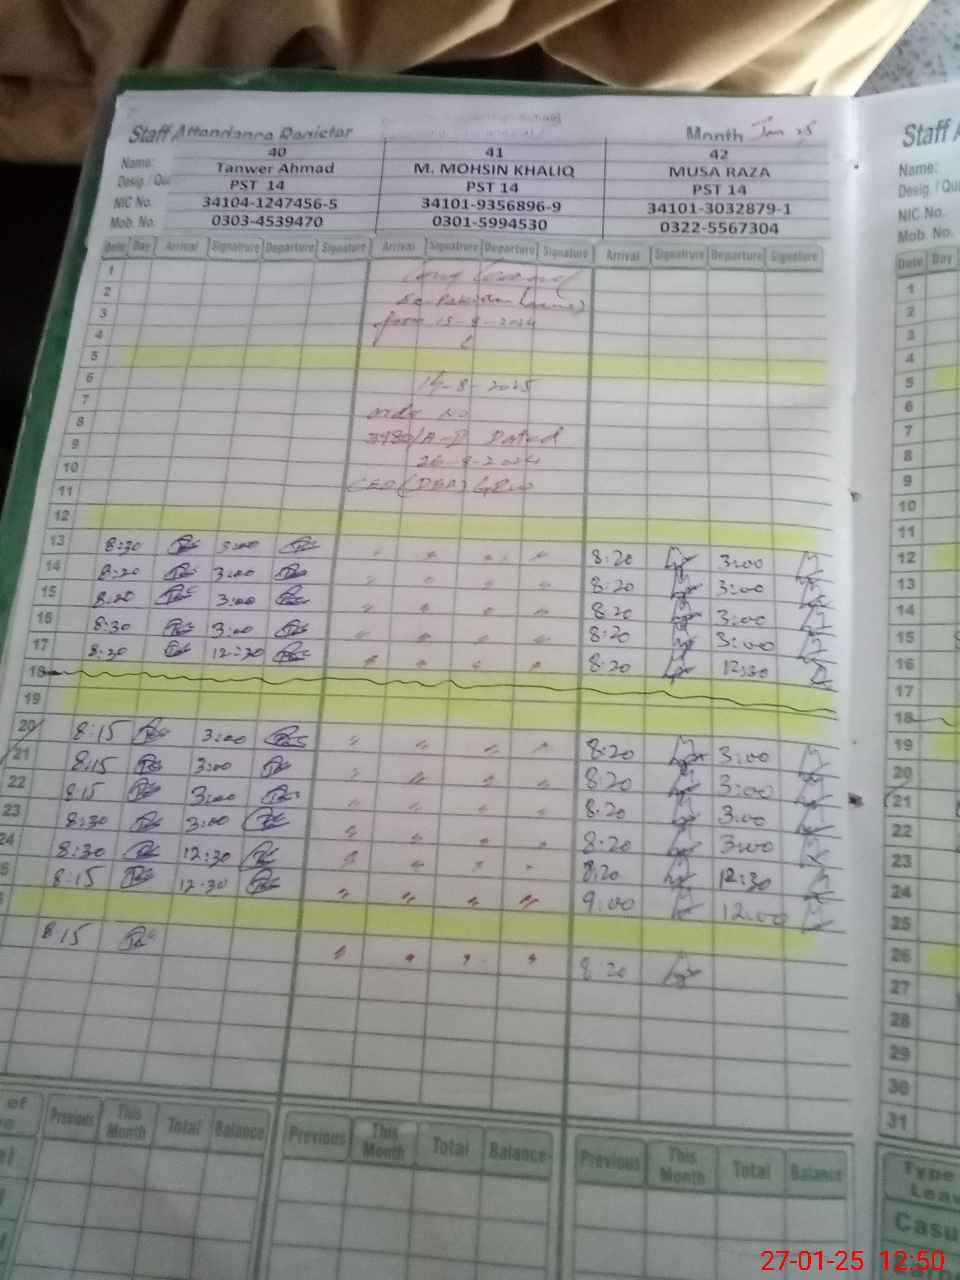 Staff Attendance Register Month Jan 25
Staff A
40 41 42
Name: Tanwer Ahmad M. MOHSIN KHALIQ MUSA RAZA
Name:
Desig. / Qu PST 14 PST 14 PST 14
Desig. / Qu
NIC No. 34104-1247456-5 34101-9356896-9 34101-3032879-1
NIC No.
Mob. No. 0303-4539470 0301-5994530 0322-5567304
Mob. No.
Date Day Arrival Signatrure Departure Signature Arrival Signatrure Departure Signature Arrival Signatrure Departure Signature
Date Day
1 Long
2 Ex Pakistan
3 from 15-8-2024
4
5
6 14-8-2025
7 order No
8 Dated
9 26-8-2024
10 CEO (DEA) GRW
11
12
13 8:30 3:00 8:20 3:00
14 8:20 3:00 8:20 3:00
15 8:20 3:00 8:20 3:00
16 8:30 3:00 8:20 3:00
17 8:30 12:30 8:20 12:30
18
19
20 8:15 3:00 8:20 3:00
21 8:15 3:00 8:20 3:00
22 8:15 3:00 8:20 3:00
23 8:30 3:00 8:20 3:00
24 8:30 12:30 8:20 12:30
5 8:15 12:30 9:00 12:00
8:15 8:20
1
2
3
4
5
6
7
8
9
10
11
12
13
14
15
16
17
18
19
20
21
22
23
24
25
26
27
28
29
30
31
of Previous This Month Total Balance Previous This Month Total Balance Previous This Month Total Balance
Type
Leav
Casu
27-01-25 12:50